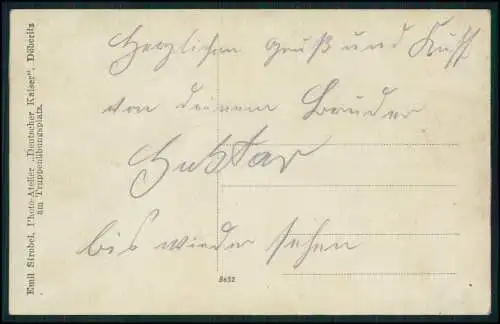 Herzlichen Gruß und Kuss
von deinem Bruder
Gustav
bis wieder sehen
Emil Strobel, Photo-Atelier „Deutscher Kaiser", Döberitz
am Truppenübungsplatz.
8652